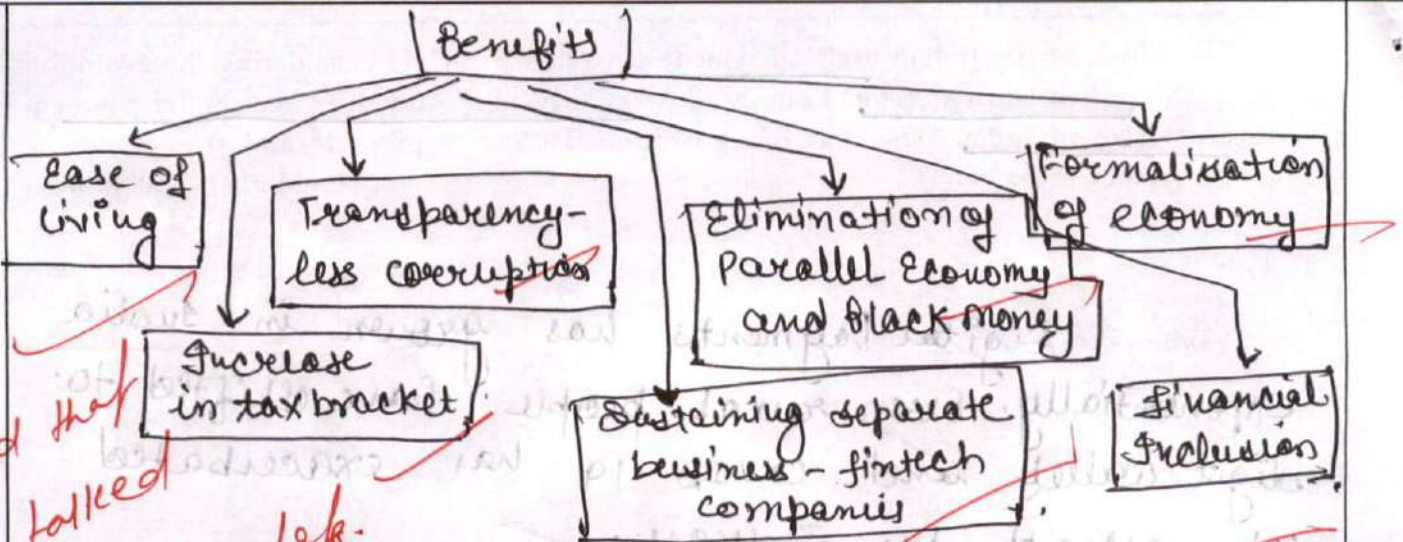 Benefits
Ease of
living
Transparency-
less corruption
Elimination of
parallel economy
and black money
Formalisation
of economy
Increase
in tax bracket
Sustaining separate
business - fintech
companies
Financial
Inclusion
that
talked